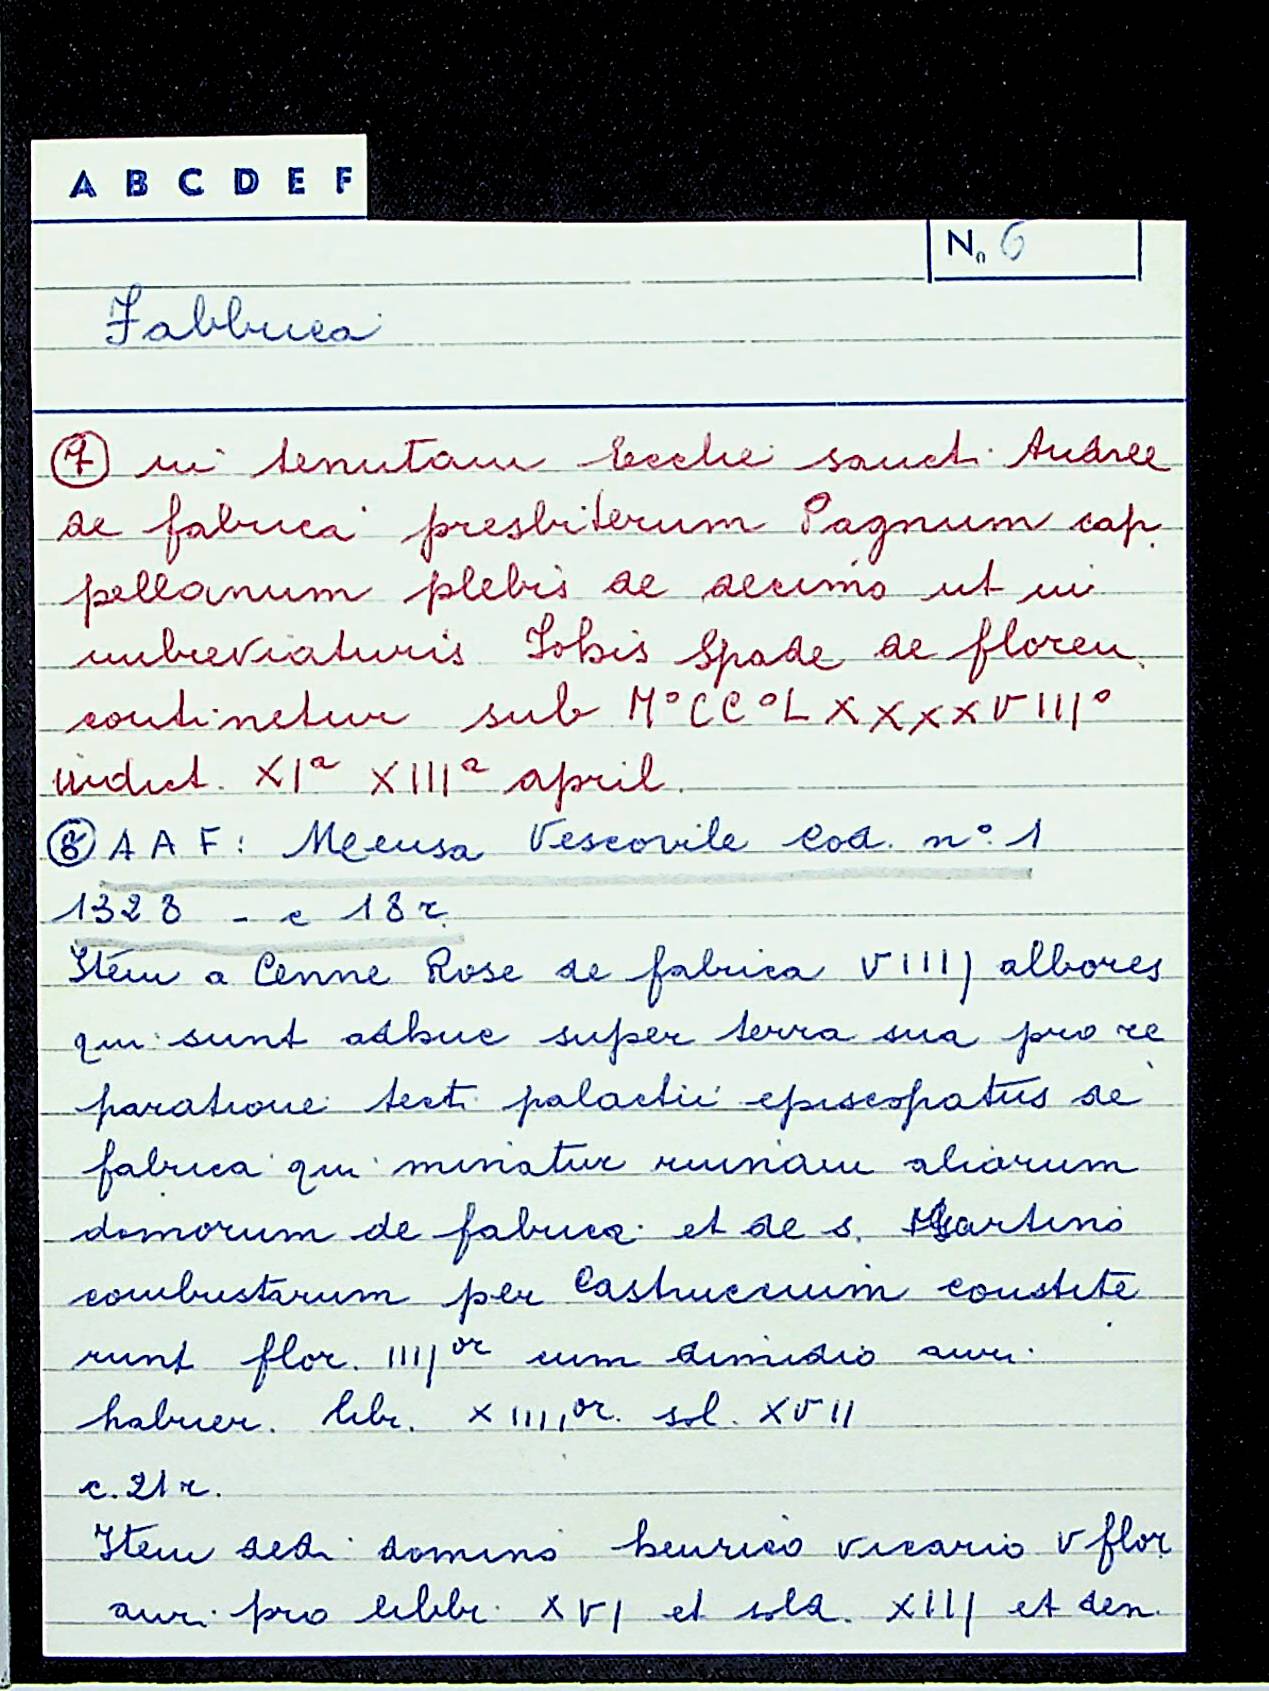 A B C D E F
No 6
Fabbrica
7 in tenutam Ecclie sancti Andree
de fabrica presbiterum Pagnum cap
pellanum plebis de decimo ut in
imbreviaturis Johis Spade de floren.
continetur sub M°CC°LXXXXVIII°
indict. XIª XIIIª april.
8 A A F: Mensa Vescovile Cod. n°. 1
1328 - c 18 r.
Item a Cenne Rose de fabrica VIIIJ albores
qui sunt adhuc super terra sua pro re
paratione tecti palactii episcopatus de
fabrica qui minatur ruinam aliarum
domorum de fabrica et de s. Martino
combustarum per Castruccium constite
runt flor. IIIJ or cum dimidio auri
habuer. libr. XIIII or. sol. XVII
c. 21 r.
Item dedi domino henrico vicario V flor
auri pro libbr. XVJ et sold. XIIJ et den.